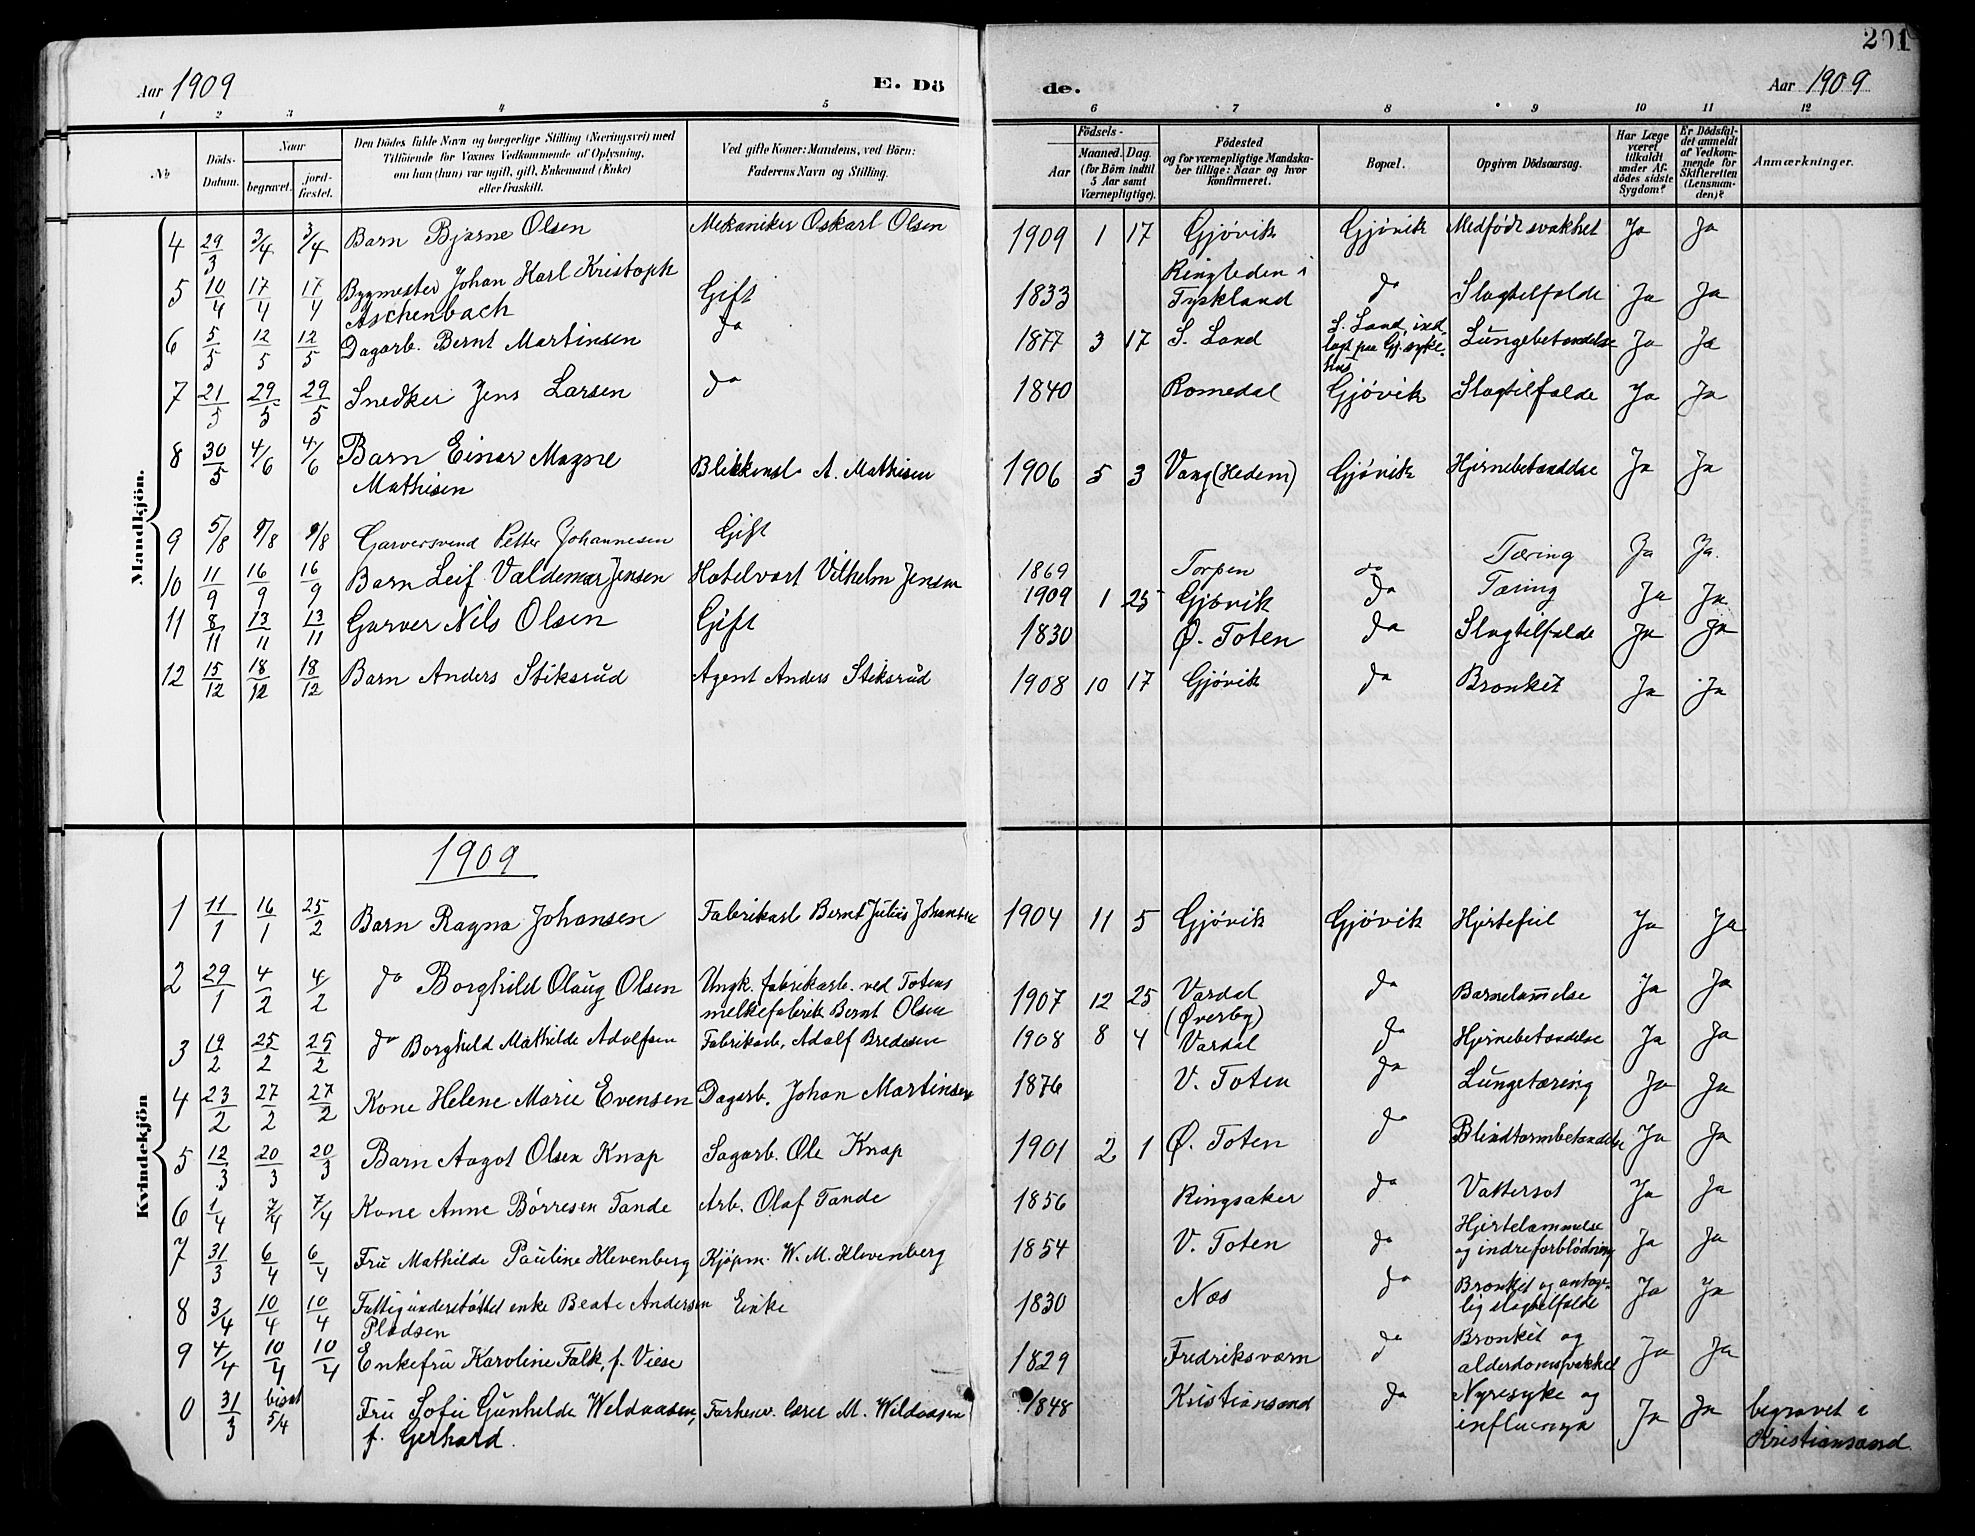 201
Aar 1909
E. Dö
de.
Aar 1909
1 2 3 4 5 6 7 8 9 10 11 12
No
Döds-Datum.
Naar
begravet.
jordfæstet.
Den Dödes fulde Navn og borgerlige Stilling (Næringsvei) med
Tilföiende for Voxnes Vedkommende af Oplysning,
om han (hun) var ugift, gift, Enkemand (Enke)
eller fraskilt.
Ved gifte Koner: Mandens, ved Börn:
Faderens Navn og Stilling.
Födsels-
Aar
Maaned. Dag.
(for Børn indtil
5 Aar samt
Værnepligtige).
Födested
og for værnepligtige Mandska-
ber tillige: Naar og hvor
konfirmeret.
Bopæl.
Opgiven Dödsaarsag.
Har Læge
været
tilkaldt
under Af-
dödes sidste
Sygdom?
Er Dödsfal-
det anmeldt
af Vedkom-
mende for
Skifteretten
(Lensman-
den)?
Anmærkninger.
Mandkjön.
4 29/3 3/4 3/4 Barn Bjarne Olsen Mekaniker Oskarl Olsen 1909 1 17 Gjøvik Gjøvik Medfødt svakhet Ja Ja
5 10/4 17/4 17/4 Bygmester Johan Karl Kristoph Aschenbach Gift 1833 i Tyskland do Slagtilfælde Ja Ja
6 5/5 12/5 12/5 Dagarb. Bernt Martinsen do 1877 3 17 S. Land S. Land, ind lagt paa Gj. syke-hus Lungebetændelse Ja Ja
7 21/5 29/5 29/5 Snedker Jens Larsen do 1840 Romedal Gjøvik Slagtilfælde Ja Ja
8 30/5 4/6 4/6 Barn Einar Magne Mathisen Blikkensl. A. Mathisen 1906 5 3 Vang (Hedem) Gjøvik Hjernebetændelse Ja Ja
9 5/8 9/8 9/8 Garversvend Petter Johannesen Gift 1869 Torpen do Tæring Ja Ja.
10 11/9 16/9 16/9 Barn Leif Valdemar Jensen Hotelvært Vilhelm Jensen 1909 1 25 Gjøvik do Tæring Ja Ja
11 8/11 13/11 13/11 Garver Nils Olsen Gift 1830 Ø. Toten do Slagtilfælde Ja Ja
12 15/12 18/12 18/12 Barn Anders Stiksrud Agent Anders Stiksrud 1908 10 17 Gjøvik do Bronkit Ja Ja
Kvindekjön
1909
1 11/1 16/1 25/2 Barn Ragna Johansen Fabrikarb Bernt Julius Johansen 1904 11 5 Gjøvik Gjøvik Hjertefeil Ja Ja
2 29/1 4/2 4/2 do Borghild Olaug Olsen Ungk. fabrikarb. ved Totens melkefabrik Bernt Olsen 1907 12 25 Vardal (Øverby) do Barnelammelse Ja Ja
3 19/2 25/2 25/2 do Borghild Mathilde Adolfsen Fabrikarb. Adolf Bredesen 1908 8 4 Vardal do Hjernebetændelse Ja Ja
4 23/2 27/2 27/2 Kone Helene Marie Evensen Dagarb. Johan Martinsen 1876 V. Toten do Lungetæring Ja Ja
5 12/3 20/3 20/3 Barn Aagot Olsen Knap Sagarb. Ole Knap 1901 2 1 Ø. Toten do Blindtarmbetændelse Ja Ja
6 1/4 7/4 7/4 Kone Anne Børresen Tande Arb. Olaf Tande 1856 Ringsaker do Vattersot Ja Ja
7 31/3 6/4 6/4 Fru Mathilde Pauline Klevenberg Kjøpm. W. M. Klevenberg 1854 V. Toten do Hjertelammelse og indre forblødning Ja Ja
8 3/4 10/4 10/4 Fattigunderstøttet enke Beate Andersen Pladsen Enke 1830 Nes do Bronkit og antage-lig slagtilfælde Ja Ja
9 4/4 10/4 10/4 Enkefru Karoline Falk, f. Viese 1829 Fredriksværn do Bronkit og alderdomssvakhet Ja Ja
0 31/3 bisat 5/4 Fru Sofie Gunhilde Weldaasen, f. Gerhard. Forhenv. lærer M. Weldaasen 1848 Kristiansand do Nyresyke og influenza Ja Ja begravet i Kristiansand.